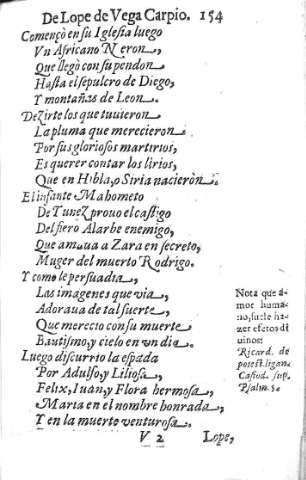 De Lope de Vega Carpio. 154
Començò en su Iglesia luego
Vn Africano Neron,
Que llegò con su pendon
Hasta el sepulcro de Diego,
Y montañas de Leon.
Dezirte los que tuuieron
La pluma que merecieron
Por sus gloriosos martirios,
Es querer contar los lirios,
Que en Hibla, o Siria nacieron.
El infante Mahometo
De Tunez prouo el castigo
Del fiero Alarbe enemigo,
Que amaua a Zara en secreto,
Muger del muerto Rodrigo.
Y como le persuadia,
Las imagenes que via,
Adoraua de tal suerte,
Que merecio con su muerte
Bautismo, y cielo en vn dia.
Luego discurrio la espada
Por Adulfo, y Liliosa,
Felix, Iuan, y Flora hermosa,
Maria en el nombre honrada,
Y en la muerte venturosa.
Nota que a-
mor huma-
no, suele ha-
zer efetos di
uinos:
Ricard. de
potest. ligan.
Casiod. sup.
Psalm.
V 2 Lope,